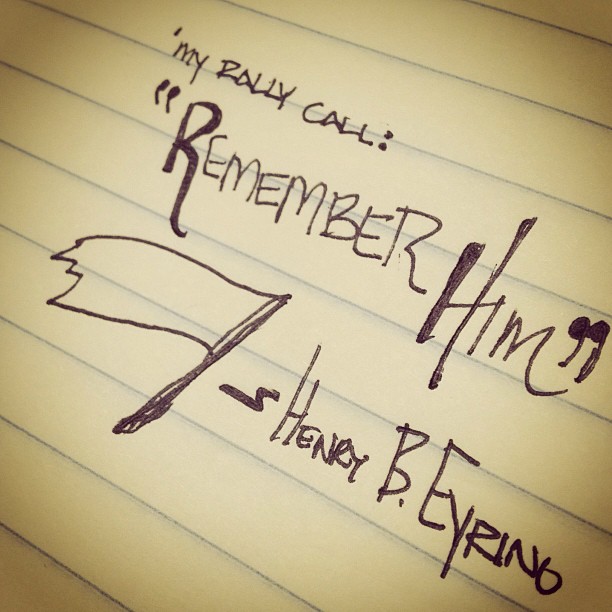 'my rally call:
"Remember Him"
~ Henry B. Eyring